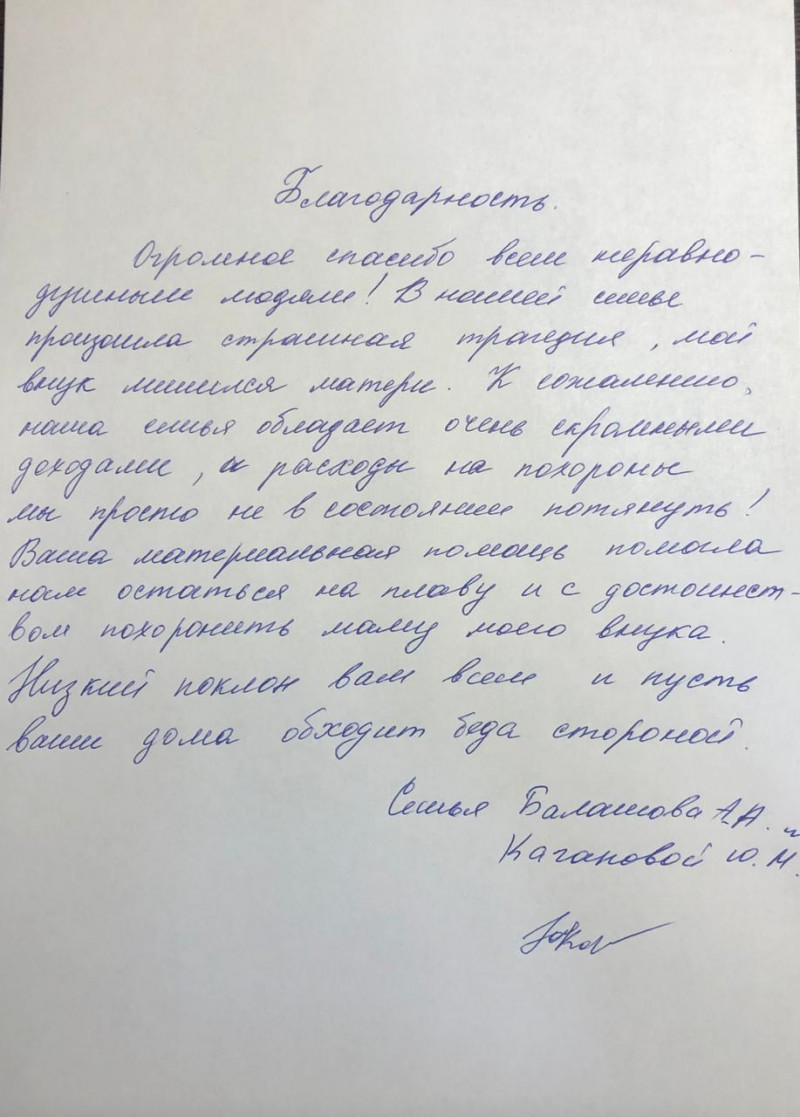 Благодарность.
Огромное спасибо всем неравно-
душным людям! В нашей семье
произошла страшная трагедия, мой
внук лишился матери. К сожалению,
наша семья обладает очень скромными
доходами, и расходы на похороны
мы просто не в состоянии потянуть!
Ваша материальная помощь помогла
нам остаться на плаву и с достоинст-
вом похоронить маму моего внука.
Низкий поклон вам всем и пусть
ваши дома обходит беда стороной.
Семья Балашова А.А. и
Кагановой Ю.М.